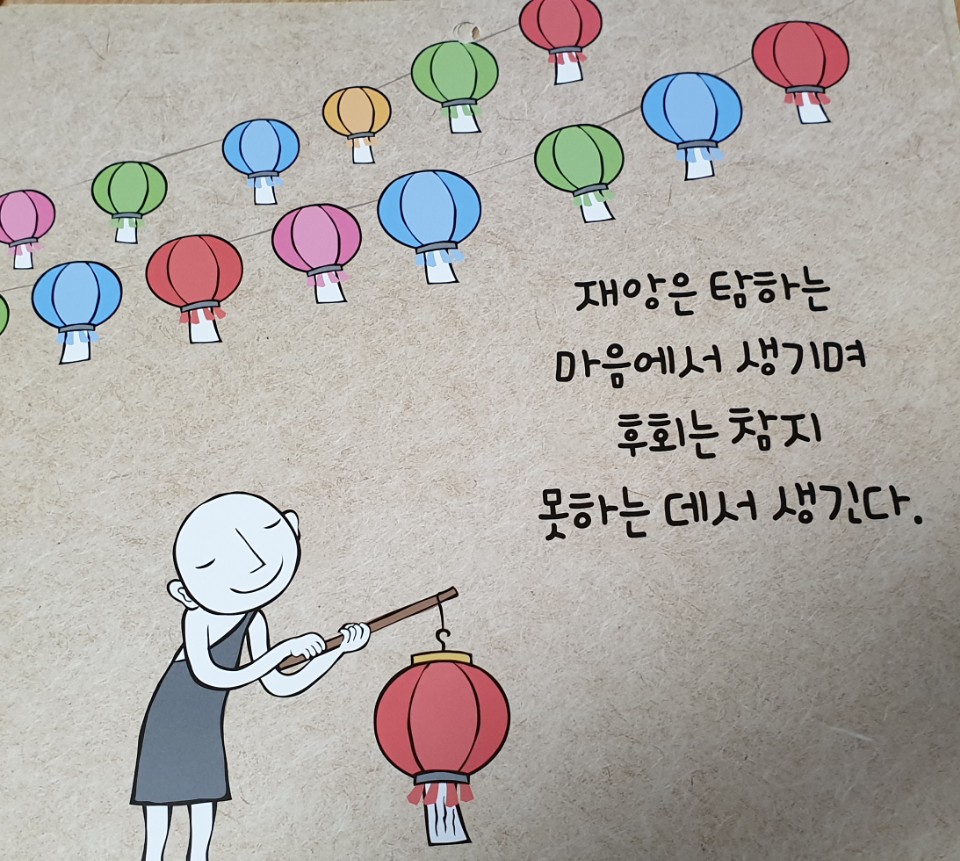 재앙은 탐하는
마음에서 생기며
후회는 참지
못하는 데서 생긴다.